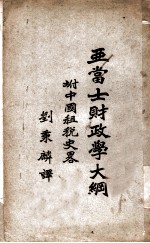 亞當士財政學大綱
坿中國租税史畧
劉秉麟譯